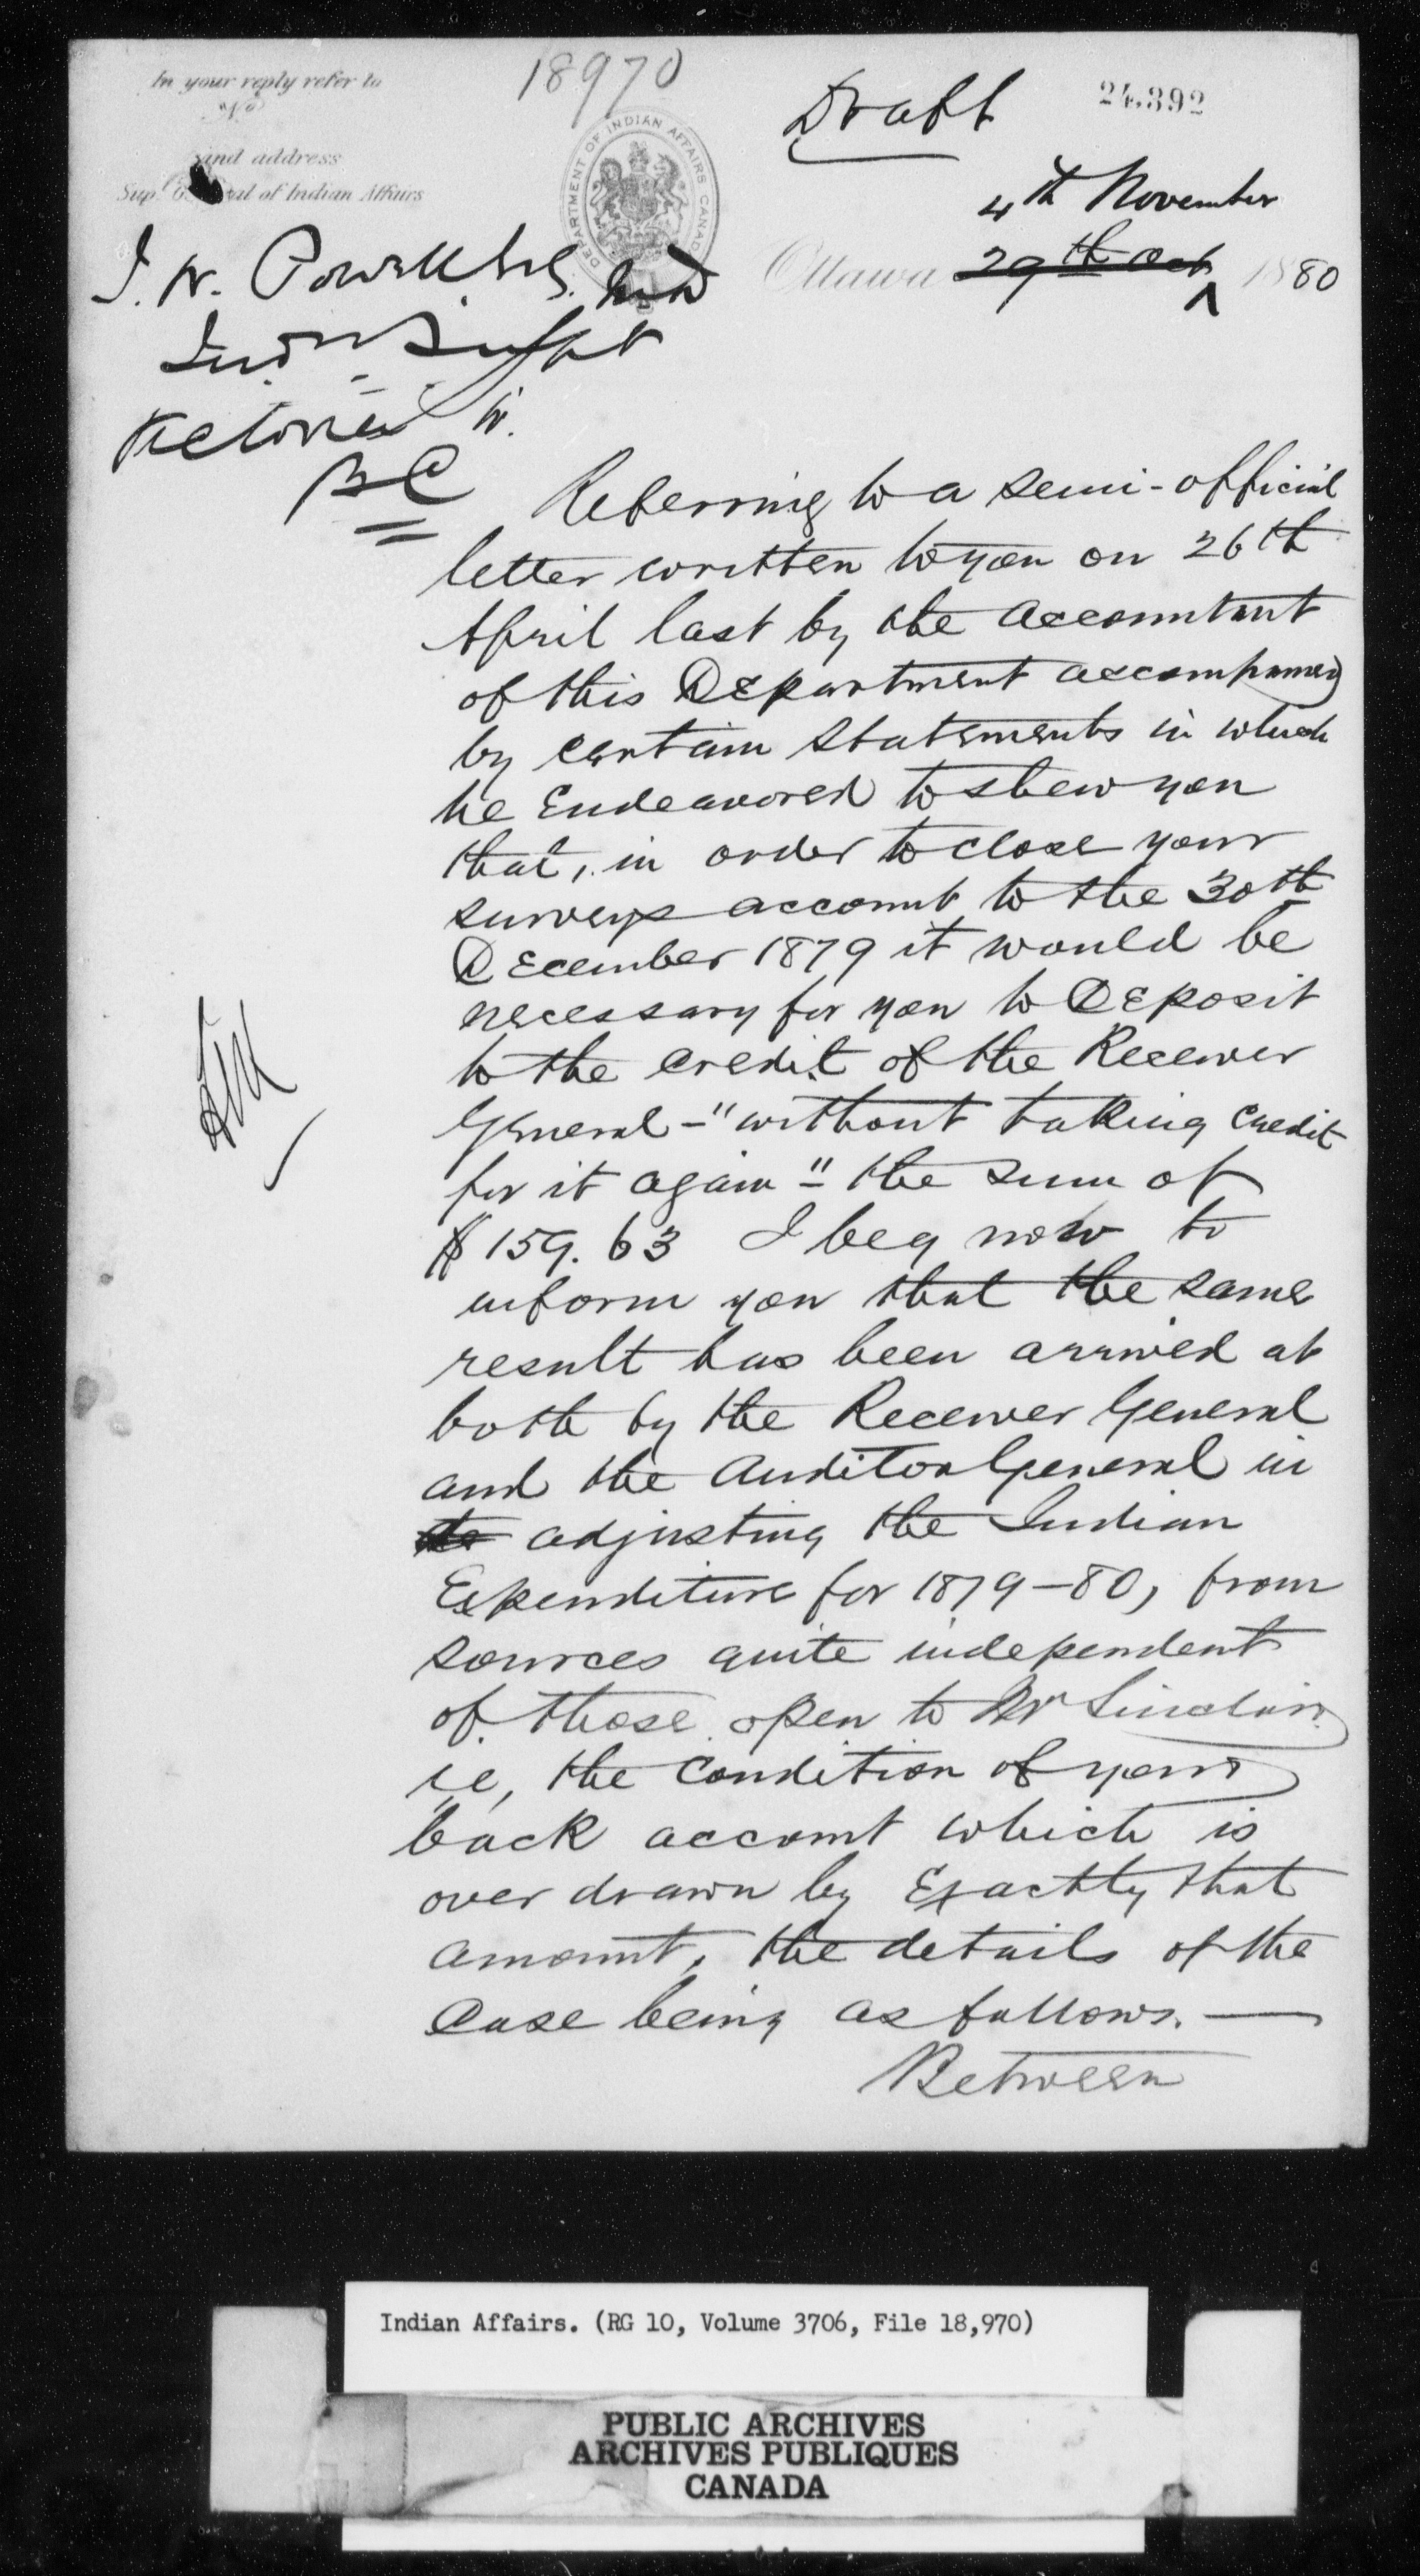 In your reply refer to
No
and address
Sup. G al of Indian Affairs
18970
DEPARTMENT OF INDIAN AFFAIRS CANADA
Draft
24,392
4th November
Ottawa 29th Oct 1880
I. W. Powell Esq. M D
Ind'n Supt
Victoria
B C
Referring to a semi-official
letter written to you on 26th
April last by the Accountant
of this Department accompanied
by certain statements in which
he Endeavored to shew you
that, in order to close your
surveys account to the 30th
December 1879 it would be
necessary for you to Deposit
to the credit of the Receiver
General - "without taking credit
for it again" - the sum of
$159.63 I beg now to
inform you that the same
result has been arrived at
both by the Receiver General
and the Auditor General in
adjusting the Indian
Expenditure for 1879-80, from
sources quite independent
of those open to Mr Sinclair
ie, the Condition of your
back account which is
over drawn by Exactly that
amount, the details of the
Case being as follows. —
Between
Indian Affairs. (RG 10, Volume 3706, File 18,970)
PUBLIC ARCHIVES
ARCHIVES PUBLIQUES
CANADA